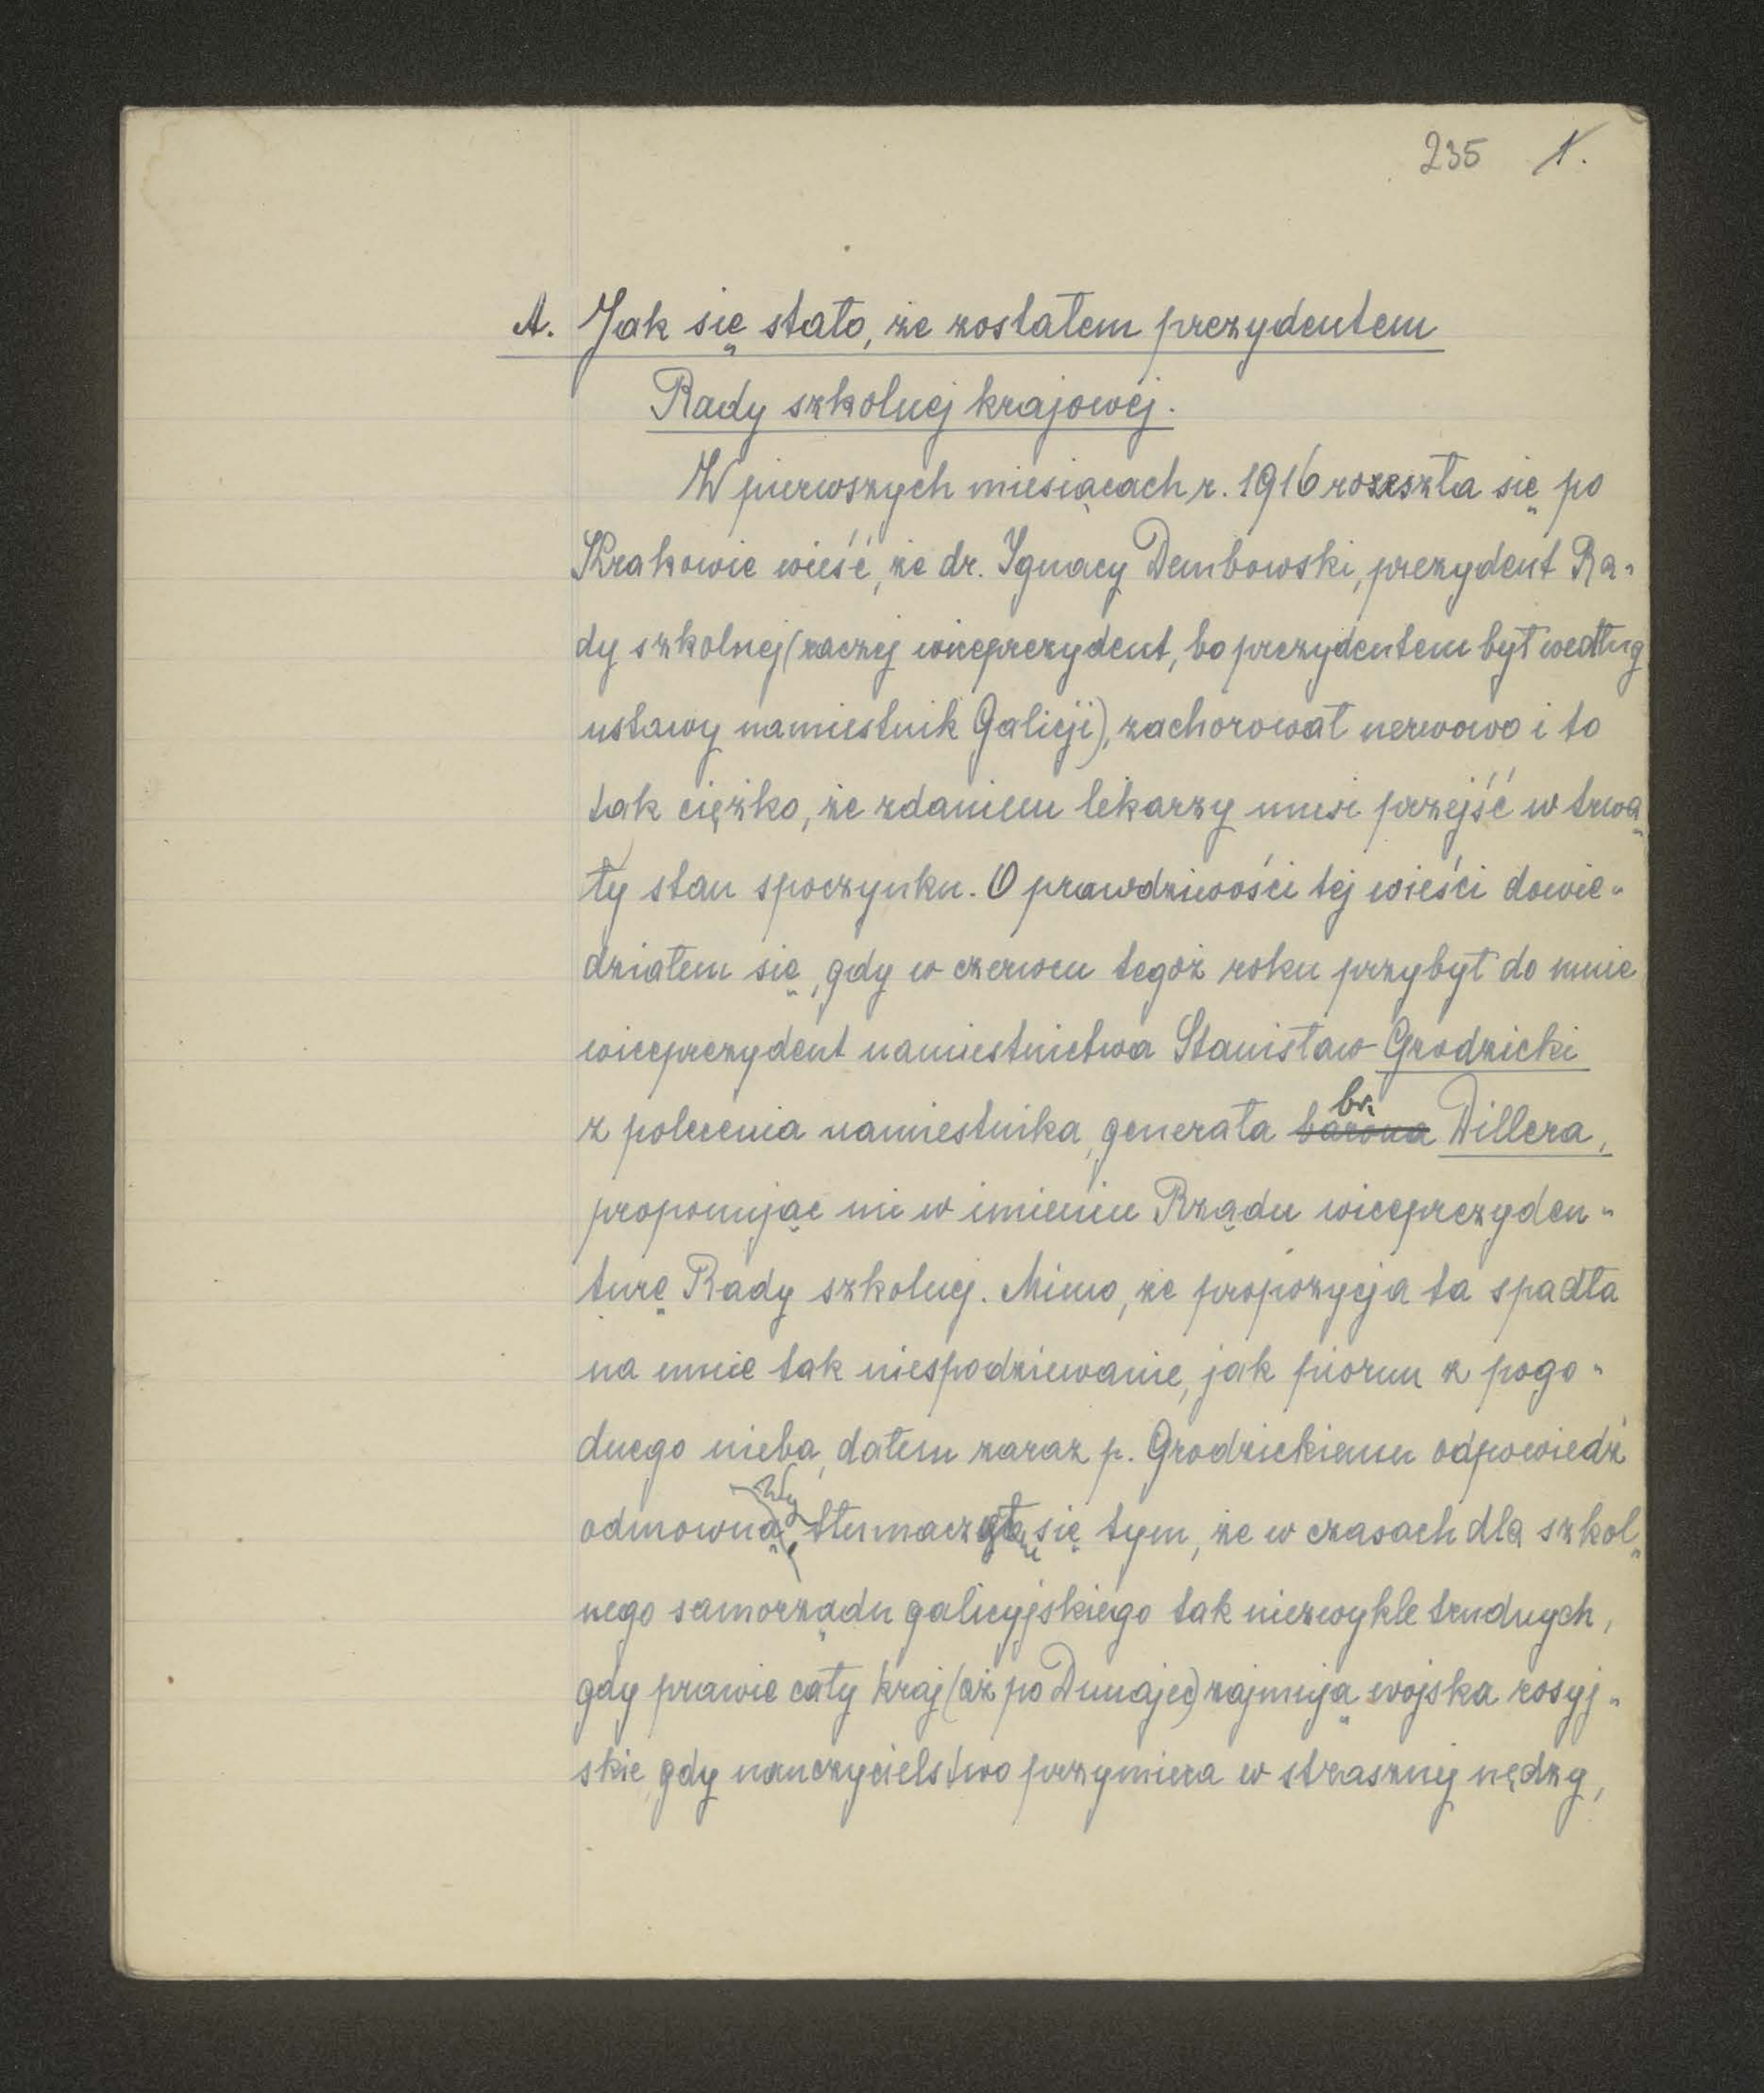 235 1.
A. Jak się stało, że zostałem prezydentem
Rady szkolnej krajowej.
W pierwszych miesiącach r. 1916 rozeszła się po
Krakowie wieść, że dr. Ignacy Dembowski, prezydent Ra-
dy szkolnej (raczej wiceprezydent, bo prezydentem był według
ustawy namiestnik Galicji), zachorował nerwowo i to
tak ciężko, że zdaniem lekarzy musi przejść w trwa-
ły stan spoczynku. O prawdziwości tej wieści dowie-
działem się, gdy w czerwcu tegoż roku przybył do mnie
wiceprezydent namiestnictwa Stanisław Grodzicki
br.
z polecenia namiestnika, generała barona Dillera,
proponując mi w imieniu Rządu wiceprezyden-
turę Rady szkolnej. Mimo, że propozycja ta spadła
na mnie tak niespodziewanie, jak piorun z pogo-
dnego nieba, dałem zaraz p. Grodzickiemu odpowiedź
odmowną, tłumacząc się tym, że w czasach dla szkol-
nego samorządu galicyjskiego tak niezwykle trudnych,
gdy prawie cały kraj (aż po Dunajec) zajmują wojska rosyj-
skie, gdy nauczycielstwo przymiera w strasznej nędzy,